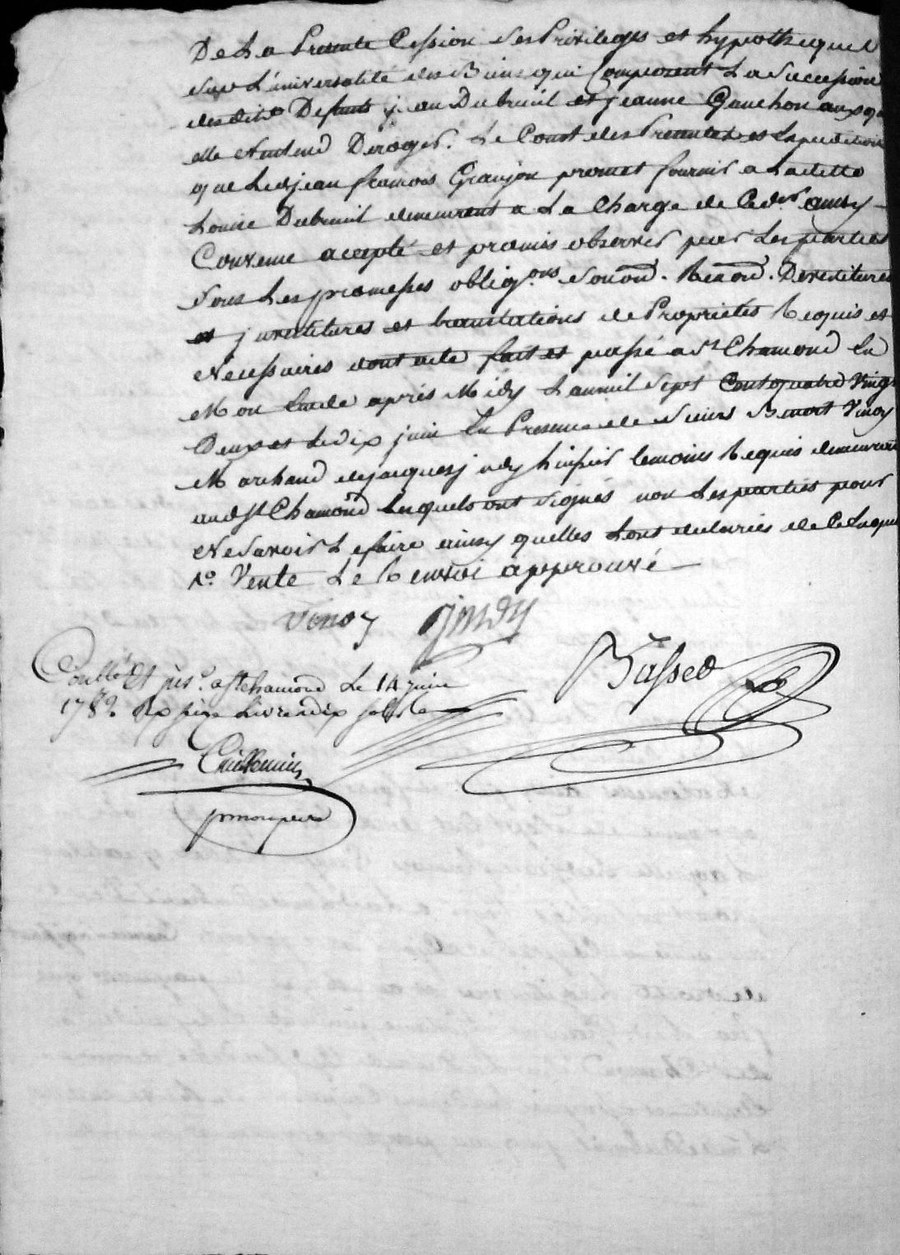 De La Presente Cession ses Privileges et hypotheques
sur L'universalité des Biens qui Composent La Succession
desdits Defunts jean Dubreuil et jeanne Ganchon aux
elle N'entend Deroger. Le Cout des Presentes et Expeditions
que Ledjean francois Granjon promet fournir a Ladette
Louise Dubreuil demeurent a La Charge de Ceder ainsy
Convenu accepté et promis observer par Les parties
sous Les promesses obligons soumon. Renon. Devestitures
et jnvestitures et translations de Proprietés Requis et
Necessaires dont acte fait et passé a St Chamond En
Mon Etude après Midy L'an mil Sept Cent quatre Vingt
Deux et Le dix juin En Presence de Sieurs Benoit Vinoy
Marchand et jacques jndy huissier temoins Requis demeurant
aud St Chamond Lesquels ont signes non Les parties pour
Ne Savoir Le faire ainsy quelles L'ont declarées de Ce
1o Vente Le Renvoi approuvé
Vinoy jndy
Conllé Et jns. a St chamond Le 14 juin
1782 Rx Seize Livres dix sols
Basset
Guillemin